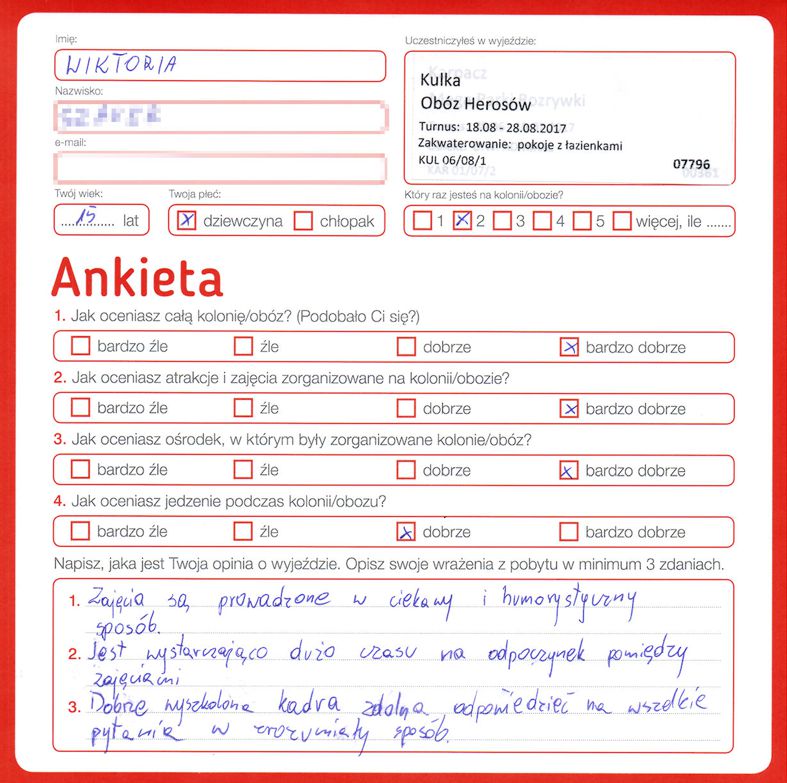 Imię:
WIKTORIA
Nazwisko:
e-mail:
Twój wiek:
15 lat
Twoja płeć:
dziewczyna chłopak
Uczestniczyłeś w wyjeździe:
Kulka
Obóz Herosów
Turnus: 18.08 - 28.08.2017
Zakwaterowanie: pokoje z łazienkami
KUL 06/08/1 07796
Który raz jesteś na kolonii/obozie?
1 2 3 4 5 więcej, ile .......
Ankieta
1. Jak oceniasz całą kolonię/obóz? (Podobało Ci się?)
bardzo źle źle dobrze bardzo dobrze
2. Jak oceniasz atrakcje i zajęcia zorganizowane na kolonii/obozie?
bardzo źle źle dobrze bardzo dobrze
3. Jak oceniasz ośrodek, w którym były zorganizowane kolonie/obóz?
bardzo źle źle dobrze bardzo dobrze
4. Jak oceniasz jedzenie podczas kolonii/obozu?
bardzo źle źle dobrze bardzo dobrze
Napisz, jaka jest Twoja opinia o wyjeździe. Opisz swoje wrażenia z pobytu w minimum 3 zdaniach.
1. Zajęcia są prowadzone w ciekawy i humorystyczny
sposób.
2. Jest wystarczająco dużo czasu na odpoczynek pomiędzy
zajęciami
3. Dobrze wyszkolona kadra zdolna odpowiedzieć na wszelkie
pytania w zrozumiały sposób.